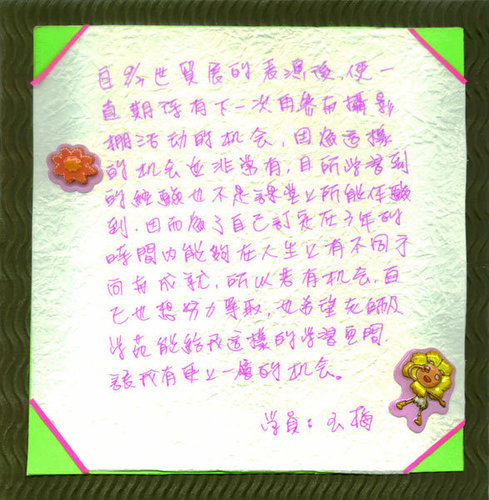 自9/2世贸展的表演後,便一
直期待有下一次再參與攝影
棚活动的机会,因為這樣
的机会並非常有,且所学習到
的經驗也不是課堂上所能体驗
到,因而為了自己訂定在3年的
時間內能夠在人生上有不同方
向和成就,所以若有机会,自
己也想努力爭取,也希望老師及
学苑能給我這樣的学習空間
讓我有更上一層的机会。
学員:玉梅